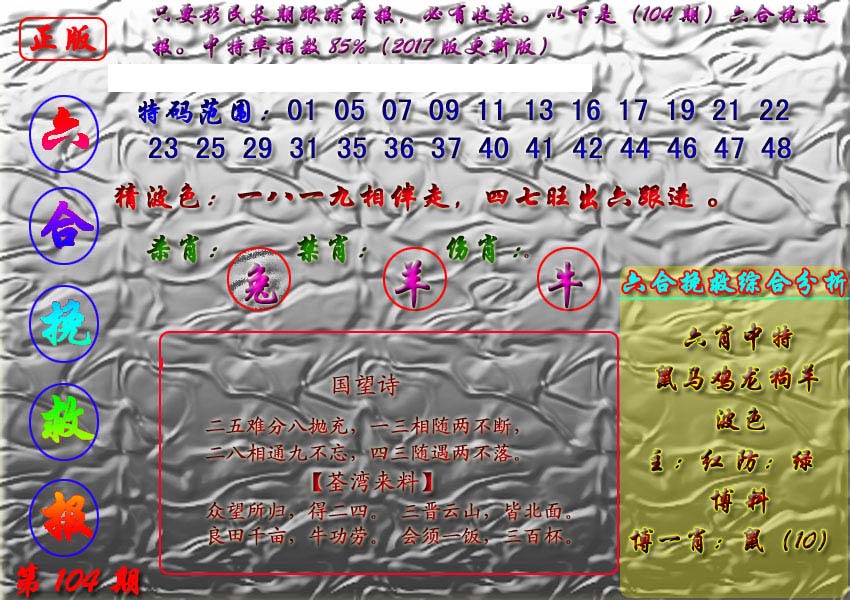 正版
只要彩民长期跟踪本报，必有收获。以下是（104期）六合挽救
报。中特率指数85%（2017版更新版）
六合挽救报
第104期
特码范围：01 05 07 09 11 13 16 17 19 21 22
23 25 29 31 35 36 37 40 41 42 44 46 47 48
猜波色：一八一九相伴走，四七旺出六跟进。
杀肖：兔 禁肖：羊 伤肖：牛
国望诗
二五难分八抛充，一三相随两不断，
二八相通九不忘，四三随遇两不落。
【荃湾来料】
众望所归，得二四。 三晋云山，皆北面。
良田千亩，牛功劳。 会须一饭，三百杯。
六合挽救综合分析
六肖中特
鼠马鸡龙狗羊
波色
主：红防：绿
博料
博一肖：鼠（10）